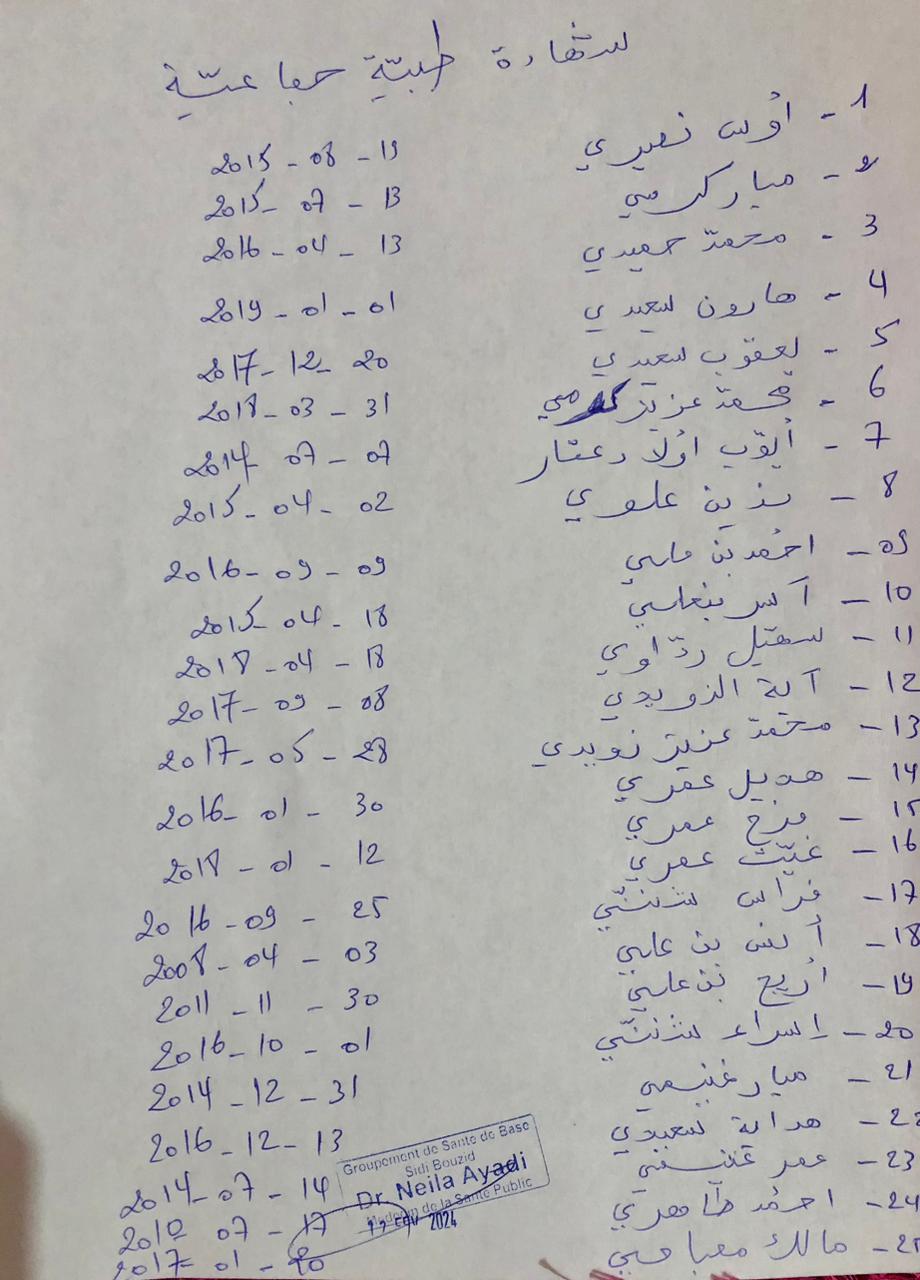 شهادة طبيّة جماعيّة
1 - أوس نصيري 2015 - 08 - 19
2 - مبارك 2015 - 07 - 13
3 - محمد حميدي 2016 - 04 - 13
4 - هارون سعيدي 2019 - 01 - 01
5 - يعقوب سعيدي 2017 - 12 - 20
6 - محمد عزيز 2018 - 03 - 31
7 - أيوّب أولاد عمّار 2014 - 07 - 07
8 - يزيد بن علوي 2015 - 04 - 02
09 - احمد بن علي 2016 - 09 - 09
10 - آسر بنعلي 2015 - 04 - 18
11 - سهيل ردّاوي 2018 - 04 - 18
12 - آية الزويدي 2017 - 09 - 08
13 - محمّد عزيز زويدي 2017 - 05 - 28
14 - هديل عمري 2016 - 01 - 30
15 - فرح عمري 2018 - 01 - 12
16 - غيث عمري 2016 - 09 - 25
17 - فراس 2008 - 04 - 03
18 - أنس بن علي 2011 - 11 - 30
19 - أريج بن علي 2016 - 10 - 01
20 - إسراء 2014 - 12 - 31
21 - ميار غنيمي 2016 - 12 - 13
22 - هداية سعيدي 2014 - 07 - 14
23 - عمر 07 - 17
24 - احمد طاهري 2017 - 01 - 20
مالك
Groupement de Santé de Base
Sidi Bouzid
Dr. Neila Ayadi
Médecin de la Santé Public
2024